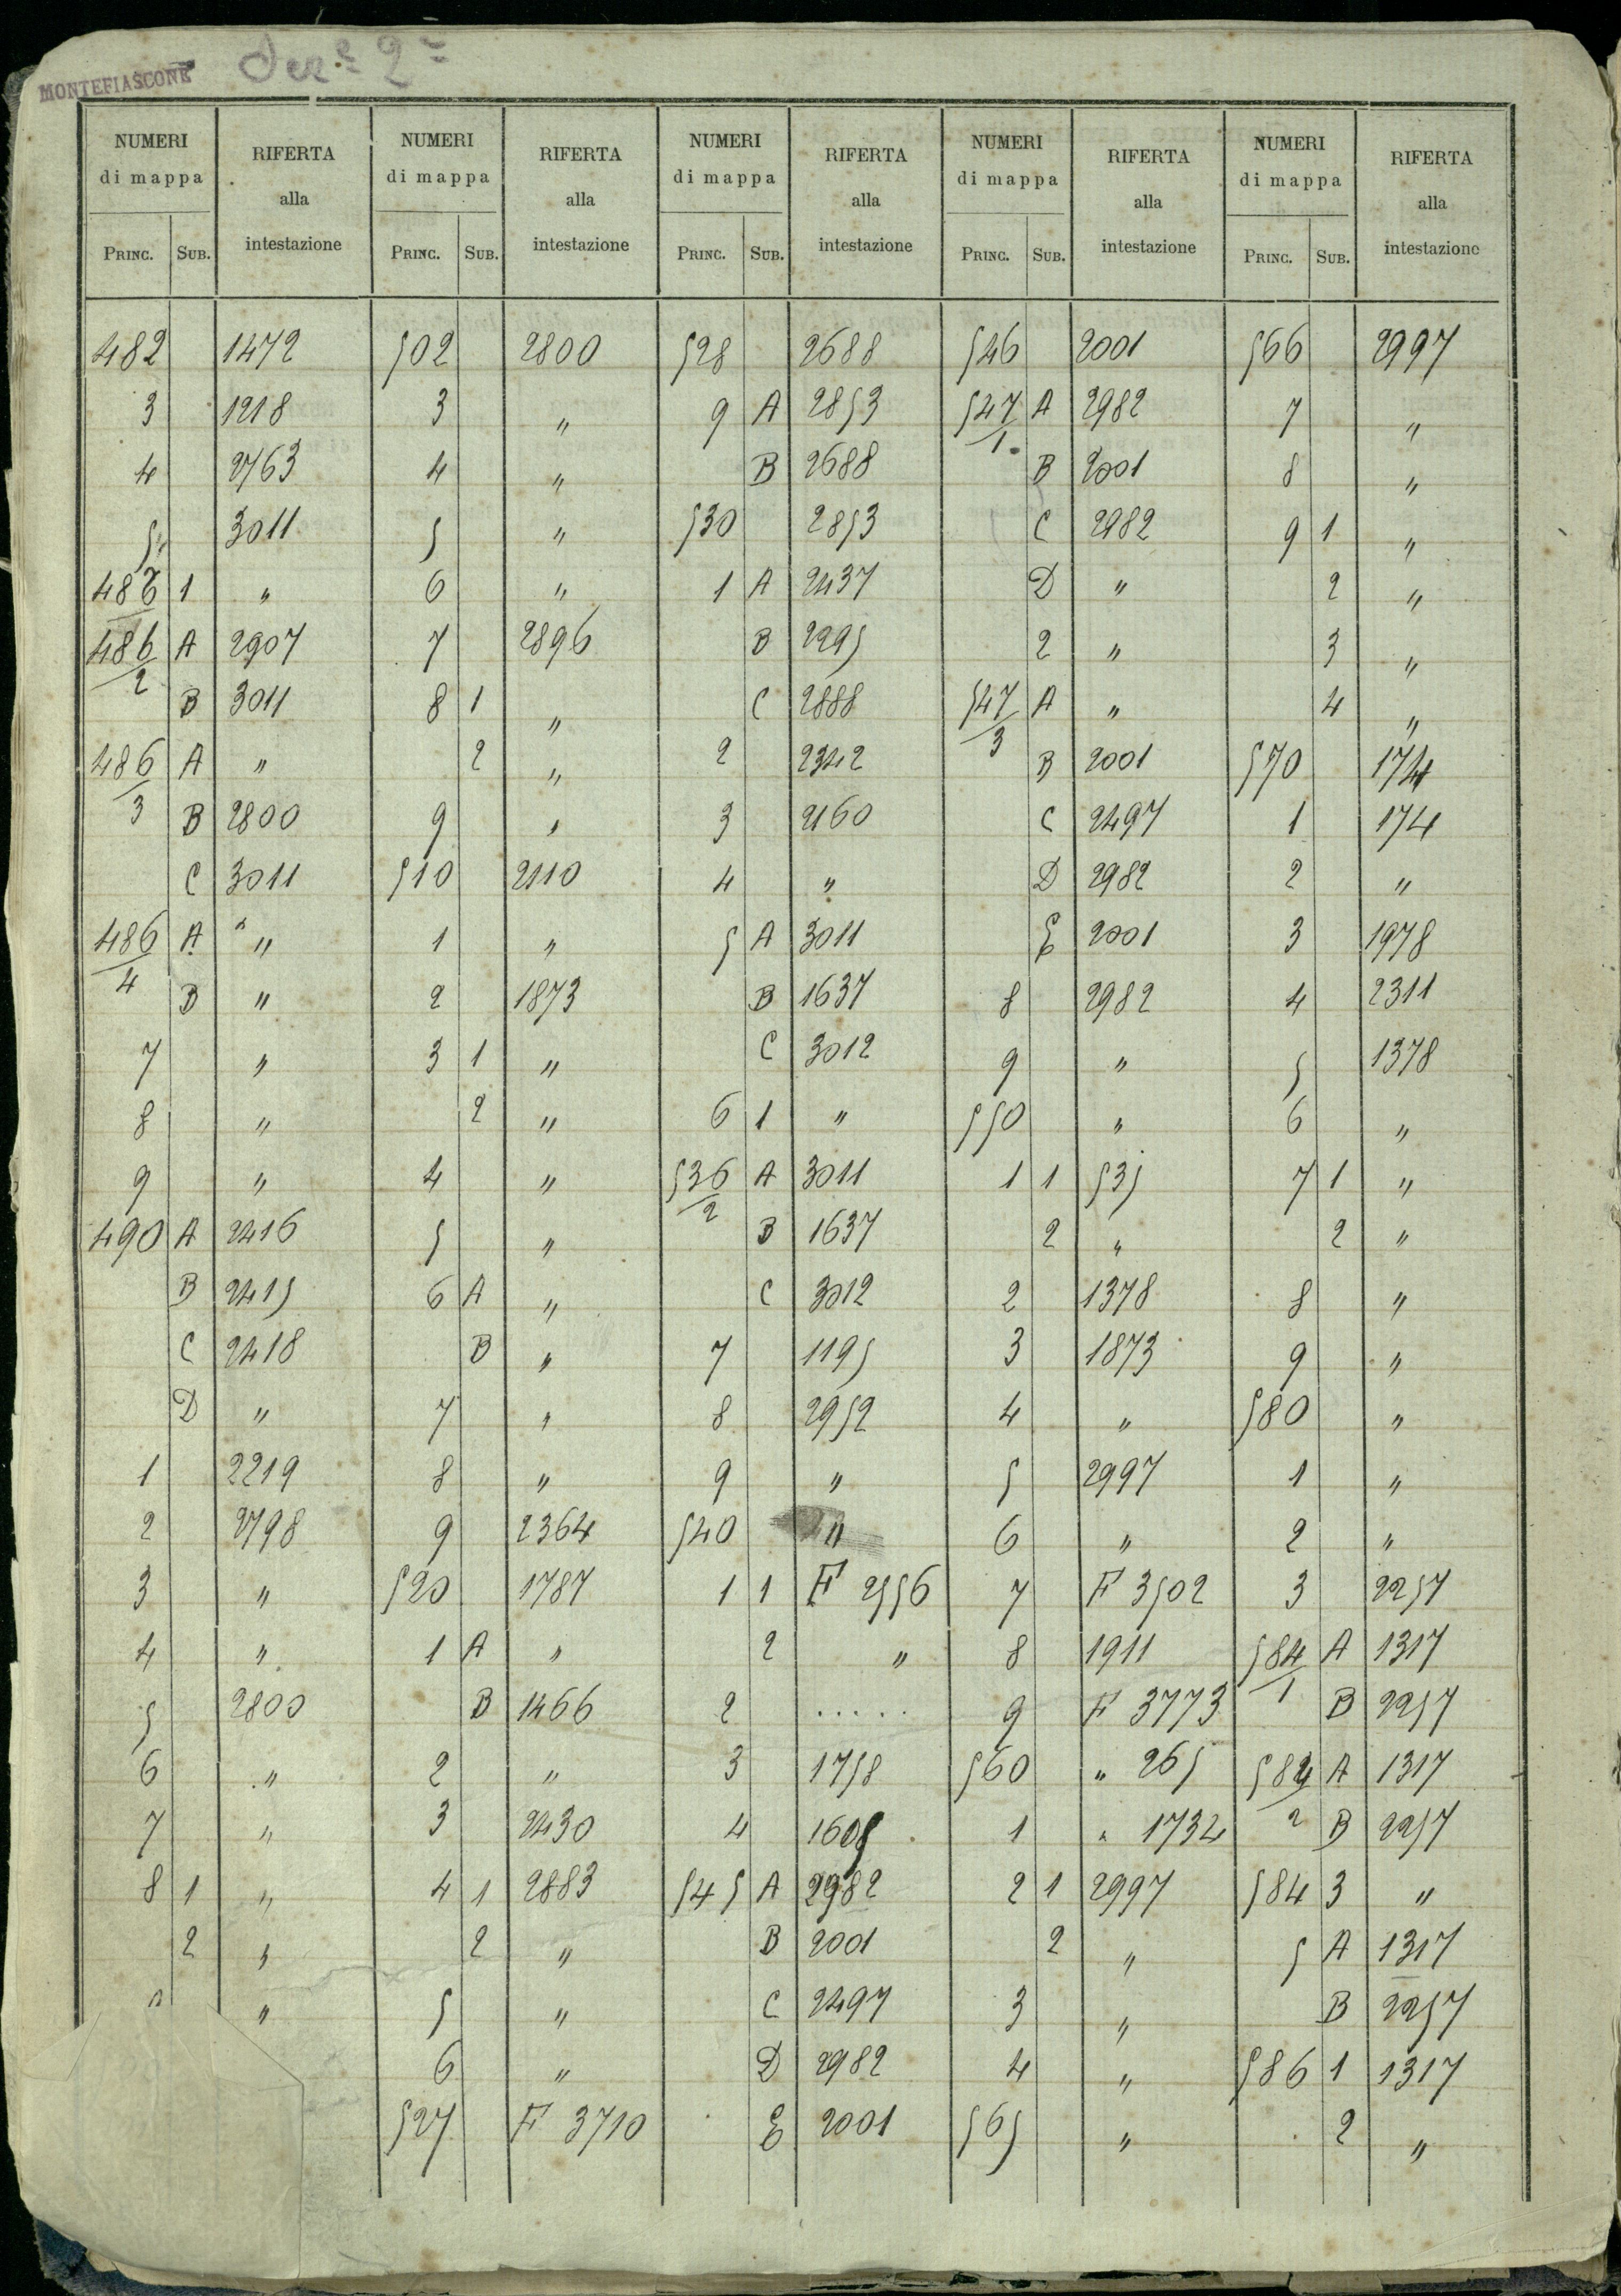 MONTEFIASCONE
NUMERI di mappa RIFERTA alla intestazione NUMERI di mappa RIFERTA alla intestazione NUMERI di mappa RIFERTA alla intestazione NUMERI di mappa RIFERTA alla intestazione NUMERI di mappa RIFERTA alla intestazione
PRINC. SUB. PRINC. SUB. PRINC. SUB. PRINC. SUB. PRINC. SUB.
482 1472 502 2800 528 2688 546 2001 566 2997
3 1218 3 " 9 A 2853 547/1 A 2982 7 "
4 2763 4 " B 2688 B 2001 8 "
5 3011 5 " 530 2853 C 2982 9 1 "
486 1 " 6 " 1 A 2437 D " 2 "
486/2 A 2907 7 2896 B 2295 2 " 3 "
B 3011 8 1 " C 2888 547/3 A " 4 "
486/3 A " 2 " 2 2342 B 2001 570 174
B 2800 9 " 3 2160 C 2497 1 174
C 3011 510 2110 4 " D 2982 2 "
486/4 A " 1 " 5 A 3011 E 2001 3 1978
B " 2 1873 B 1637 8 2982 4 2311
7 " 3 1 " C 3012 9 " 5 1378
8 " 2 " 6 1 " 550 " 6 "
9 " 4 " 536/2 A 3011 1 1 535 7 1 "
490 A 2416 5 " B 1637 2 " 2 "
B 2415 6 A " C 3012 2 1378 8 "
C 2418 B " 7 1195 3 1873 9 "
D " 7 " 8 2952 4 " 580 "
1 2219 8 " 9 " 5 2997 1 "
2 2798 9 2364 540 " 6 " 2 "
3 " 520 1787 1 1 F 2556 7 F 3502 3 2257
4 " 1 A " 2 " 8 1911 584/1 A 1317
5 2800 B 1466 2 ..... 9 F 3773 B 2257
6 " 2 " 3 1758 560 " 265 584/2 A 1317
7 " 3 2430 4 1605 1 " 1734 B 2257
8 1 " 4 1 2883 545 A 2982 2 1 2997 584 3 "
2 " 2 " B 2001 2 " 5 A 1317
" 5 " C 2497 3 " B 2257
6 " D 2982 4 " 586 1 1317
527 F 3710 E 2001 565 " 2 "